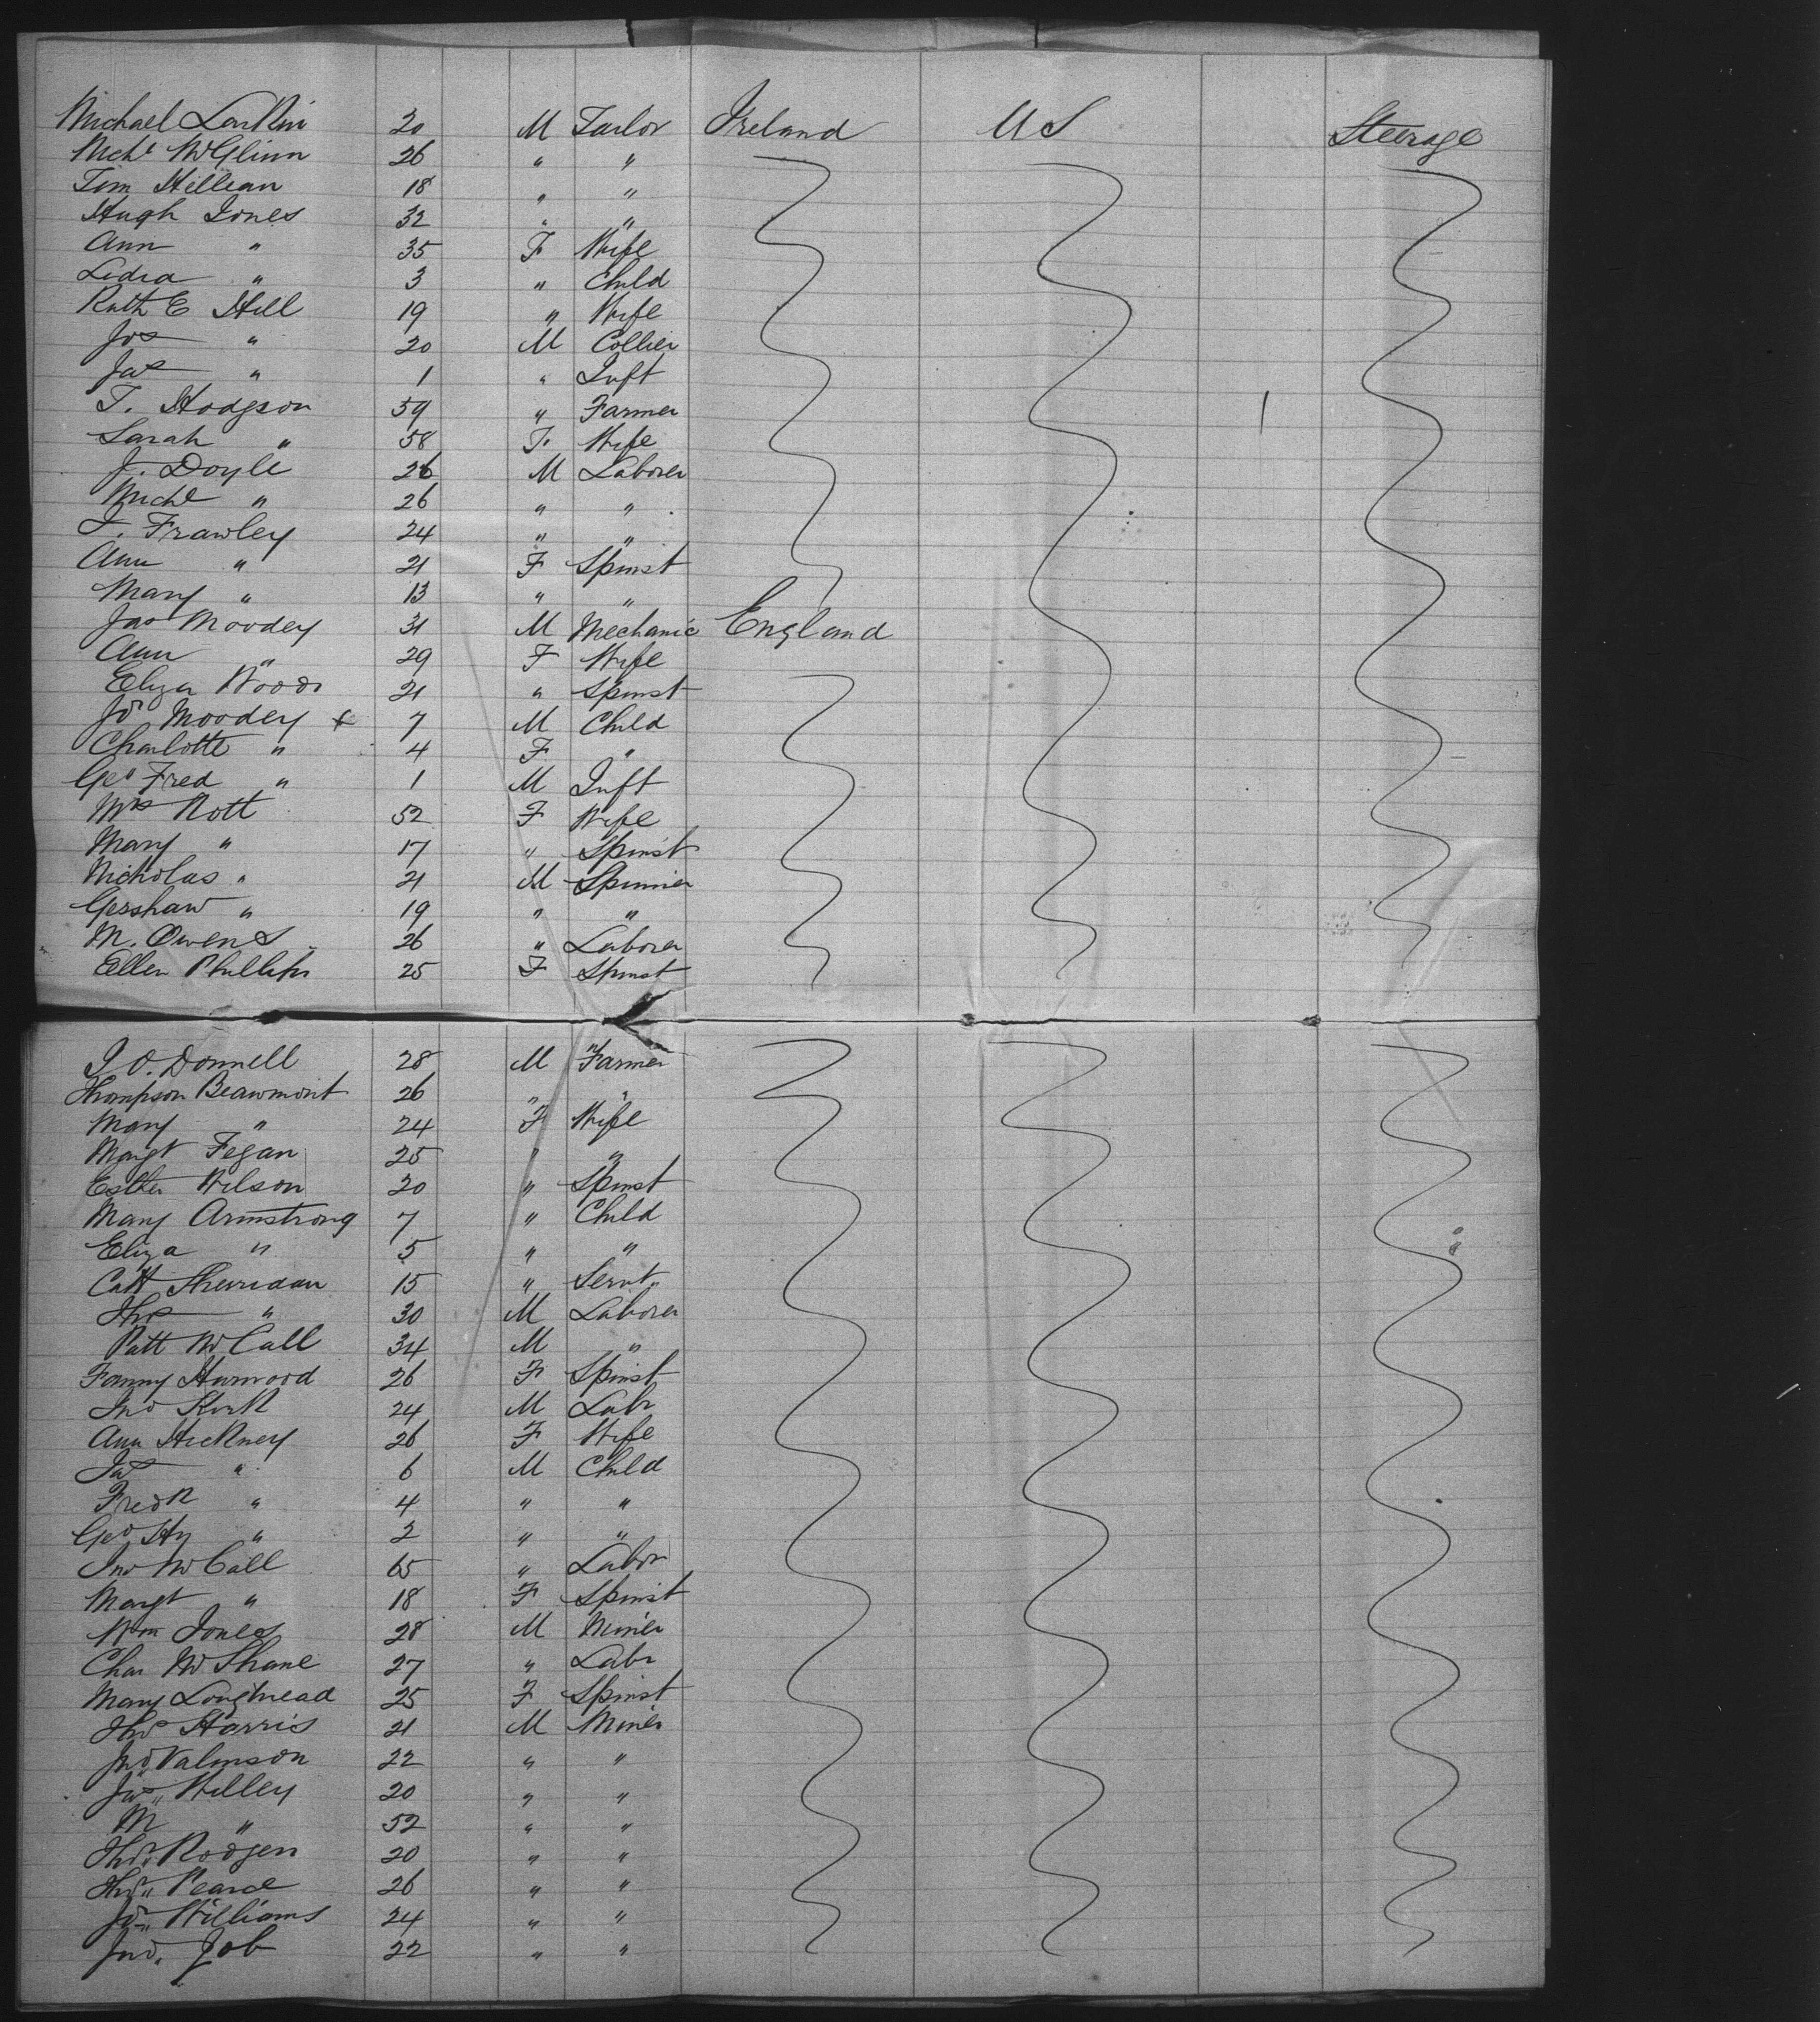 Michael Larkin 20 M Tailor Ireland U S Steerage
Michl McGlinn 26 " "
Tim Hillean 18 " "
Hugh Jones 32 " "
Ann " 35 F Wife
Lidia " 3 " Child
Ruth E Hill 19 " Wife
Jos " 20 M Collier
Jas " 1 " Inft
T. Hodgson 59 " Farmer
Sarah " 58 F Wife
J. Doyle 26 M Laborer
Michl " 26 " "
T. Frawley 24 " "
Ann " 21 F Spinst
Mary " 13 " "
Jas Moodey 31 M Mechanic England
Ann " 29 F Wife
Eliza Woods 21 " Spinst
Jos Moodey 7 M Child
Charlotte " 4 F "
Geo Fred " 1 M Inft
Mrs Nott 52 F Wife
Mary " 17 " Spinst
Nicholas " 21 M Spinner
Gershaw " 19 " "
M. Owens 26 " Laborer
Ellen Phillips 25 F Spinst
J O. Donnell 28 M Farmer
Thompson Beawmont 26 " "
Mary " 24 F Wife
Margt Fegan 25 " "
Esther Wilson 20 " Spinst
Mary Armstrong 7 " Child
Eliza " 5 " "
Cath Sherridan 15 " Servt
Ths " 30 M Laborer
Patt McCall 34 M "
Fanny Harwood 26 F Spinst
Jno Kirk 24 M Labr
Ann Hickney 26 F Wife
Jas " 6 M Child
Fredk " 4 " "
Geo Hy " 2 " "
Jno McCall 65 " Labor
Margt " 18 F Spinst
Wm Jones 28 M Miner
Chas McShane 27 " Labr
Mary Loughead 25 F Spinst
Thos Harris 21 M Miner
Jno 22 " "
Jas Willey 20 " "
M " 52 " "
Thos Rodgen 20 " "
Thos Pearce 26 " "
Jos Williams 24 " "
Jno. Job 22 " "